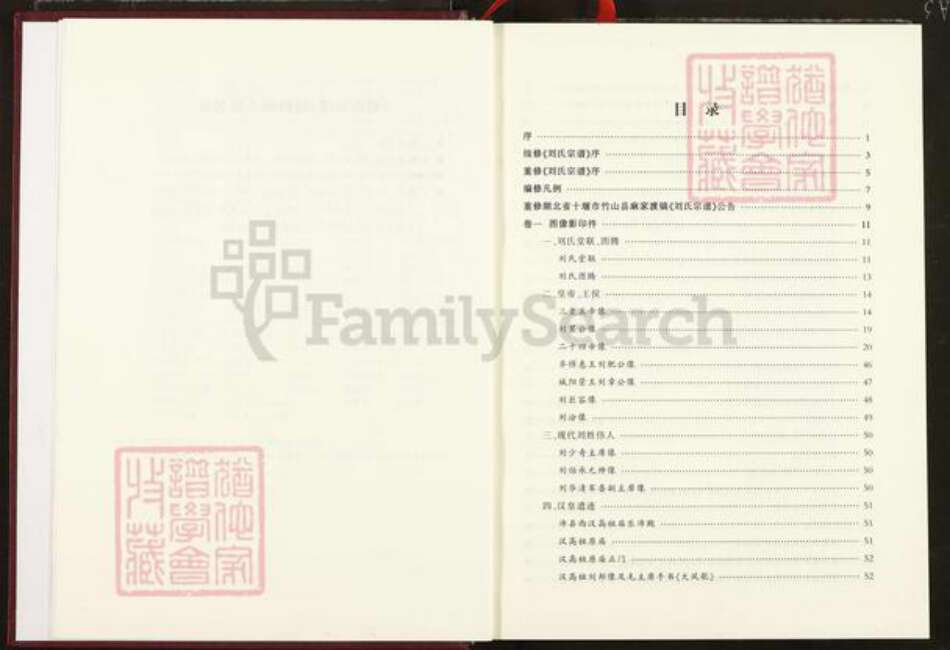 目录
序 1
续修《刘氏宗谱》序 3
重修《刘氏宗谱》序 5
编修凡例 7
重修湖北省十堰市竹山县麻家渡镇《刘氏宗谱》公告 9
卷一 图像影印件 11
一、刘氏堂联、图腾 11
刘氏堂联 11
刘氏图腾 13
二、皇帝、王侯 14
三皇五帝像 14
刘累公像 19
二十四帝像 20
齐悼惠王刘肥公像 46
城阳景王刘章公像 47
刘巨容像 48
刘汾像 49
三、现代刘姓伟人 50
刘少奇主席像 50
刘伯承元帅像 50
刘华清军委副主席像 50
四、汉皇遗迹 51
沛县西汉高祖庙东沛殿 51
汉高祖原庙 51
汉高祖原庙正门 52
汉高祖刘邦像及毛主席手书《大风歌》 52
FamilySearch